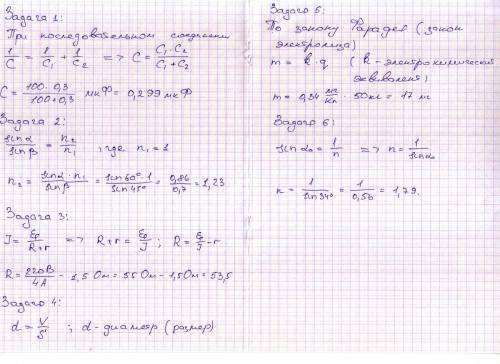 Задача 1:
При последовательном соединении
1/C = 1/C₁ + 1/C₂ => C = C₁·C₂/C₁+C₂
C = 100·0,3/100+0,3 мкФ = 0,299 мкФ
Задача 2:
sinα/sinβ = n₂/n₁ ; где n₁ = 1
n₂ = sinα·n₁/sinβ = sin60°·1/sin45° = 0,86/0,7 = 1,23
Задача 3:
I = ℰ/R+r => R+r = ℰ/I ; R = ℰ/I - r
R = 220В/4А - 1,5 Ом = 55 Ом - 1,5 Ом = 53,5
Задача 4:
d = V/S ; d - диаметр (размер)
Задача 5:
По закону Фарадея (закон
электролиза)
m = k·q (k - электрохимический
эквивалент)
m = 0,34 мг/Кл · 50кл = 17 мг
Задача 6:
sinα₀ = 1/n => n = 1/sinα₀
n = 1/sin34° = 1/0,56 = 1,79.